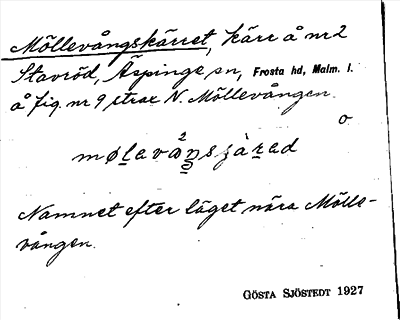 Möllevångskärret, kärr å nr 2
Stavröd, Äspinge sn, Frosta hd, Malm. l.
å fig. nr 9 strax N. Möllevången.
o
Namnet efter läget nära Mölle-
vången.
GÖSTA SJÖSTEDT 1927